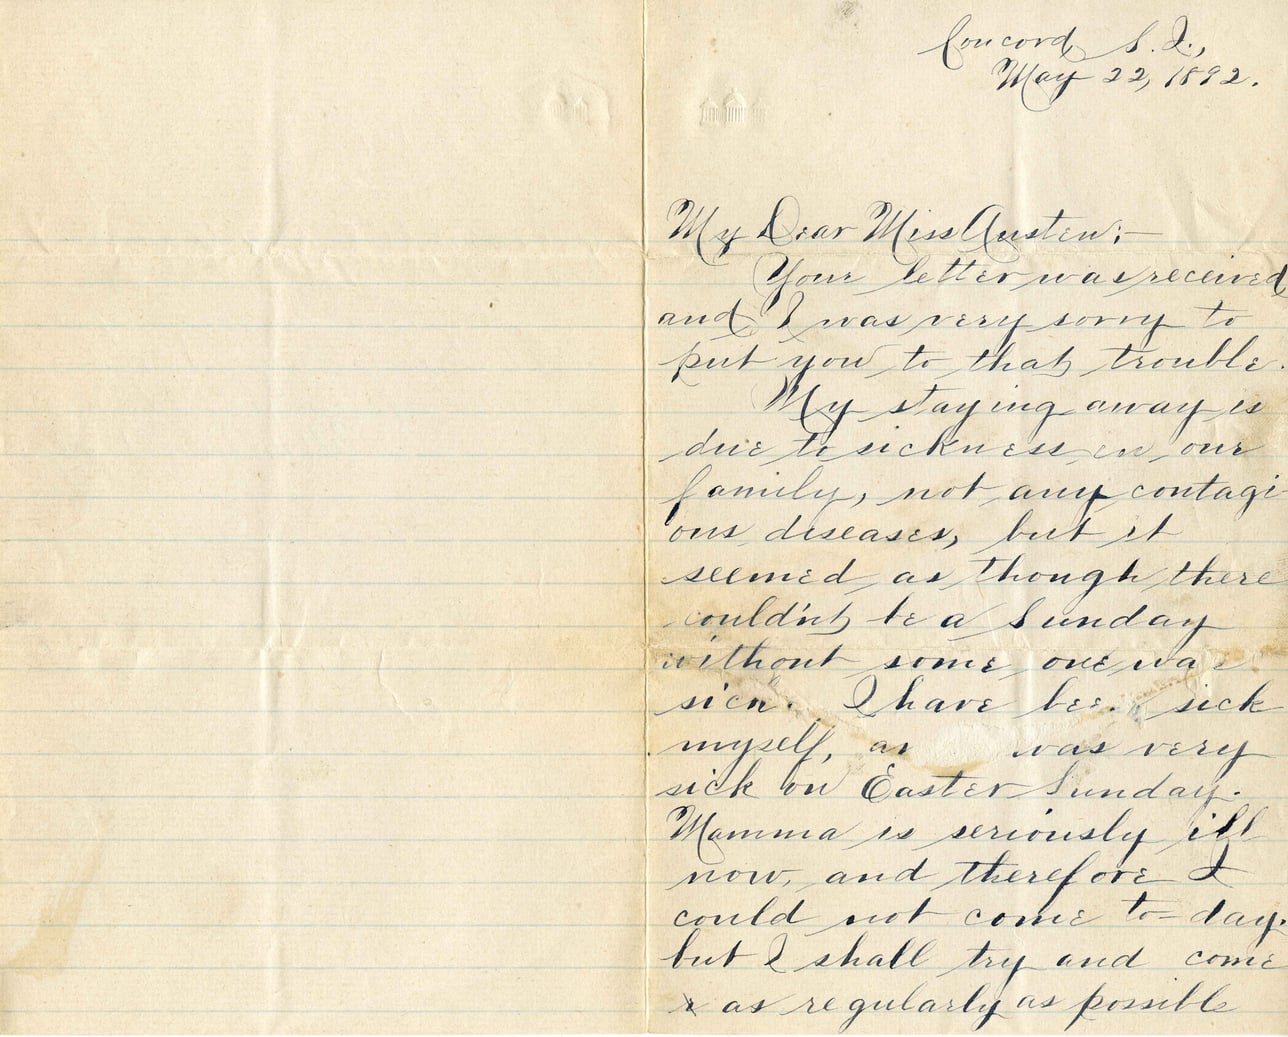 Concord S. I.,
May 22, 1892.
My Dear Miss Austen;—
Your letter was received
and I was very sorry to
put you to that trouble.
My staying away is
due to sickness in our
family, not any contagi
ous diseases, but it
seemed as though there
couldn't be a Sunday
without some one was
sick. I have sick
myself, was very
sick on Easter Sunday.
Mamma is seriously ill
now, and therefore I
could not come to-day.
but I shall try and come
as regularly as possible